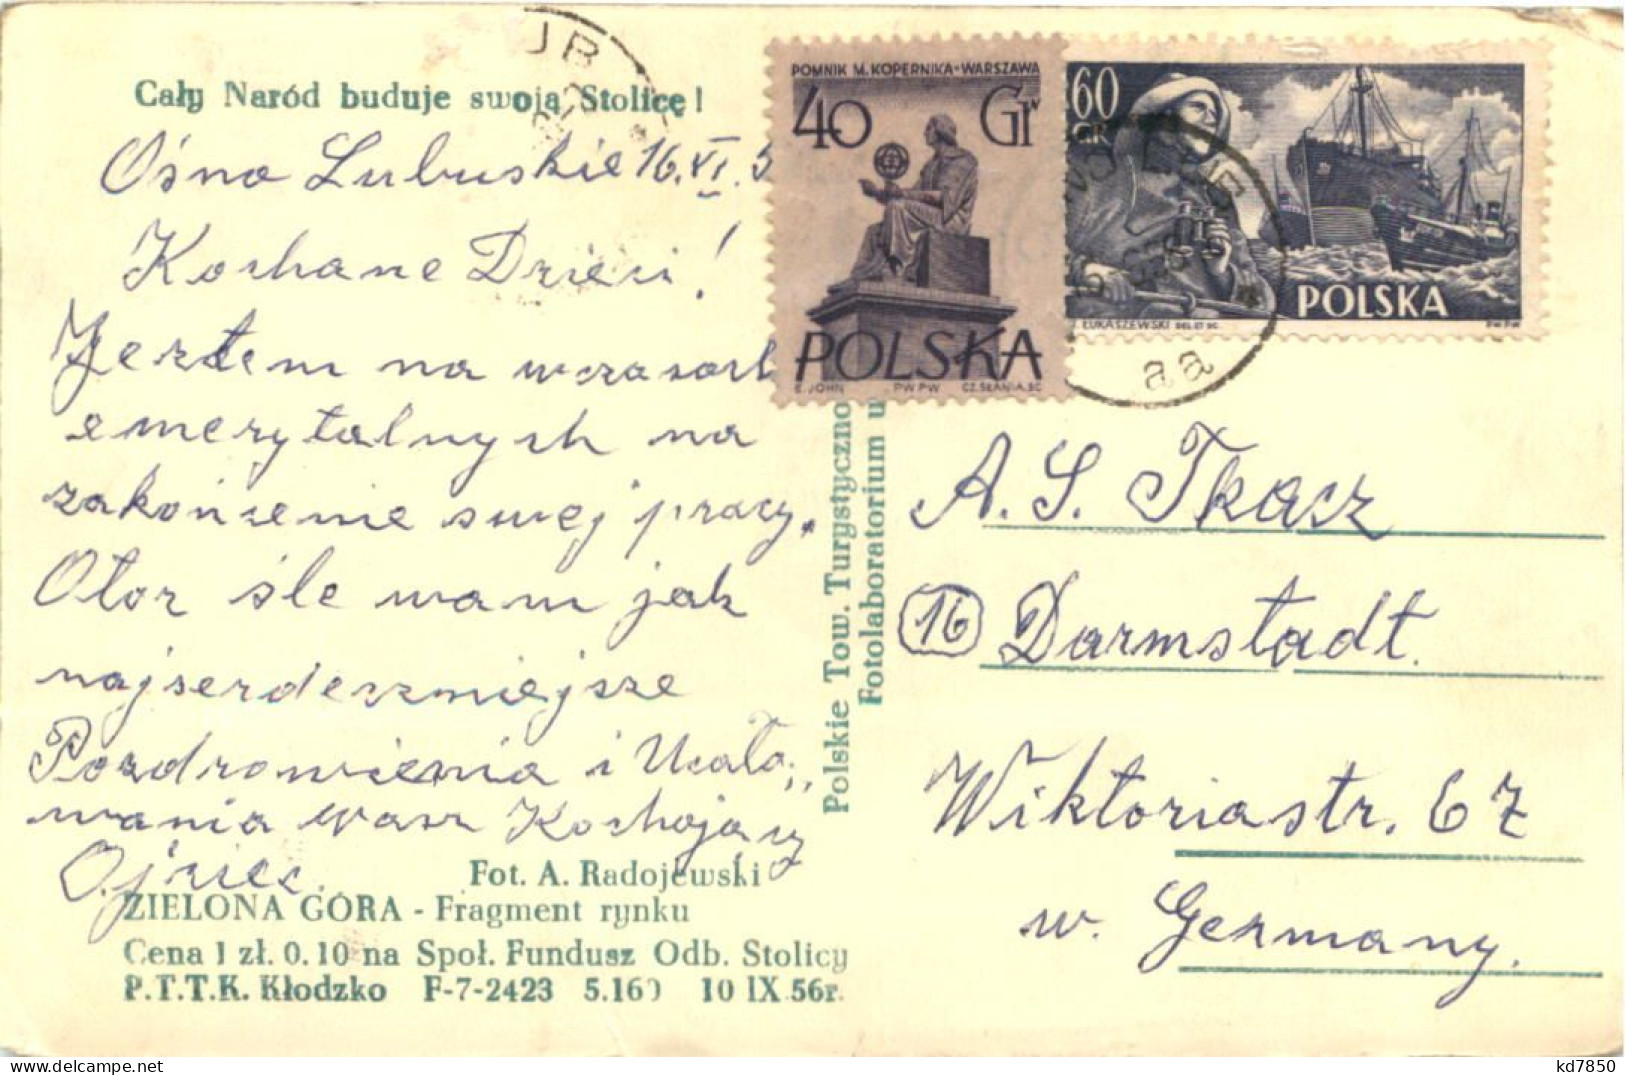 Cały Naród buduje swoją Stolicę!
Ośno Lubuskie 16.XI.5
Kochane Dzieci!
Jestem na wczasach
emerytalnych na
zakończenie swej pracy.
Otoz śle wam jak
najserdeczniejsze
Pozdrowienia i Ucało,,
wania wasz Kochający
Ojciec.
Fot. A. Radojewski
ZIELONA GÓRA - Fragment rynku
Cena 1 zł. 0.10 na Społ. Fundusz Odb. Stolicy
P.T.T.K. Kłodzko F-7-2423 5.160 10 IX 56r.
Polskie Tow. Turystyczno
Fotolaboratorium u
POMNIK M. KOPERNIKA-WARSZAWA
40 Gr
POLSKA
E. JOHN PWPW CZ. SŁANIA. SC
60
GR
POLSKA
ŁUKASZEWSKI DEL. ET SC.
PWPW
LUB
a a
A. S. Tkacz
16 Darmstadt.
Wiktoriastr. 67
w. Germany.
kd7850